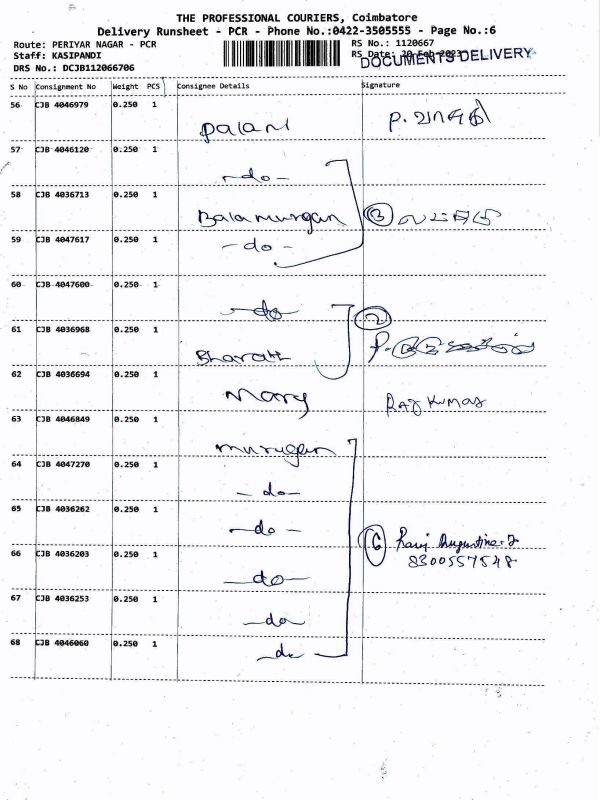 THE PROFESSIONAL COURIERS, Coimbatore
Delivery Runsheet - PCR - Phone No.:0422-3505555 - Page No.:6
Route: PERIYAR NAGAR - PCR
RS No.: 1120667
Staff: KASIPANDI
RS Date: 20-Feb-2023
DOCUMENTS DELIVERY
DRS No.: DCJB112066706
S No Consignment No Weight PCS Consignee Details Signature
56 CJB 4046979 0.250 1
Palani
57 CJB 4046120 0.250 1
-do-
58 CJB 4036713 0.250 1
Balamurugan 3
59 CJB 4047617 0.250 1
-do-
60 CJB 4047600 0.250 1
-do- 2
61 CJB 4036968 0.250 1
Bharath
62 CJB 4036694 0.250 1
Mary Raj Kumar
63 CJB 4046849 0.250 1
murugan
64 CJB 4047270 0.250 1
-do-
65 CJB 4036262 0.250 1
-do- 6 Ravi Augustine.J
66 CJB 4036203 0.250 1
8300557548
-do-
67 CJB 4036253 0.250 1
-do-
68 CJB 4046060 0.250 1
-do-